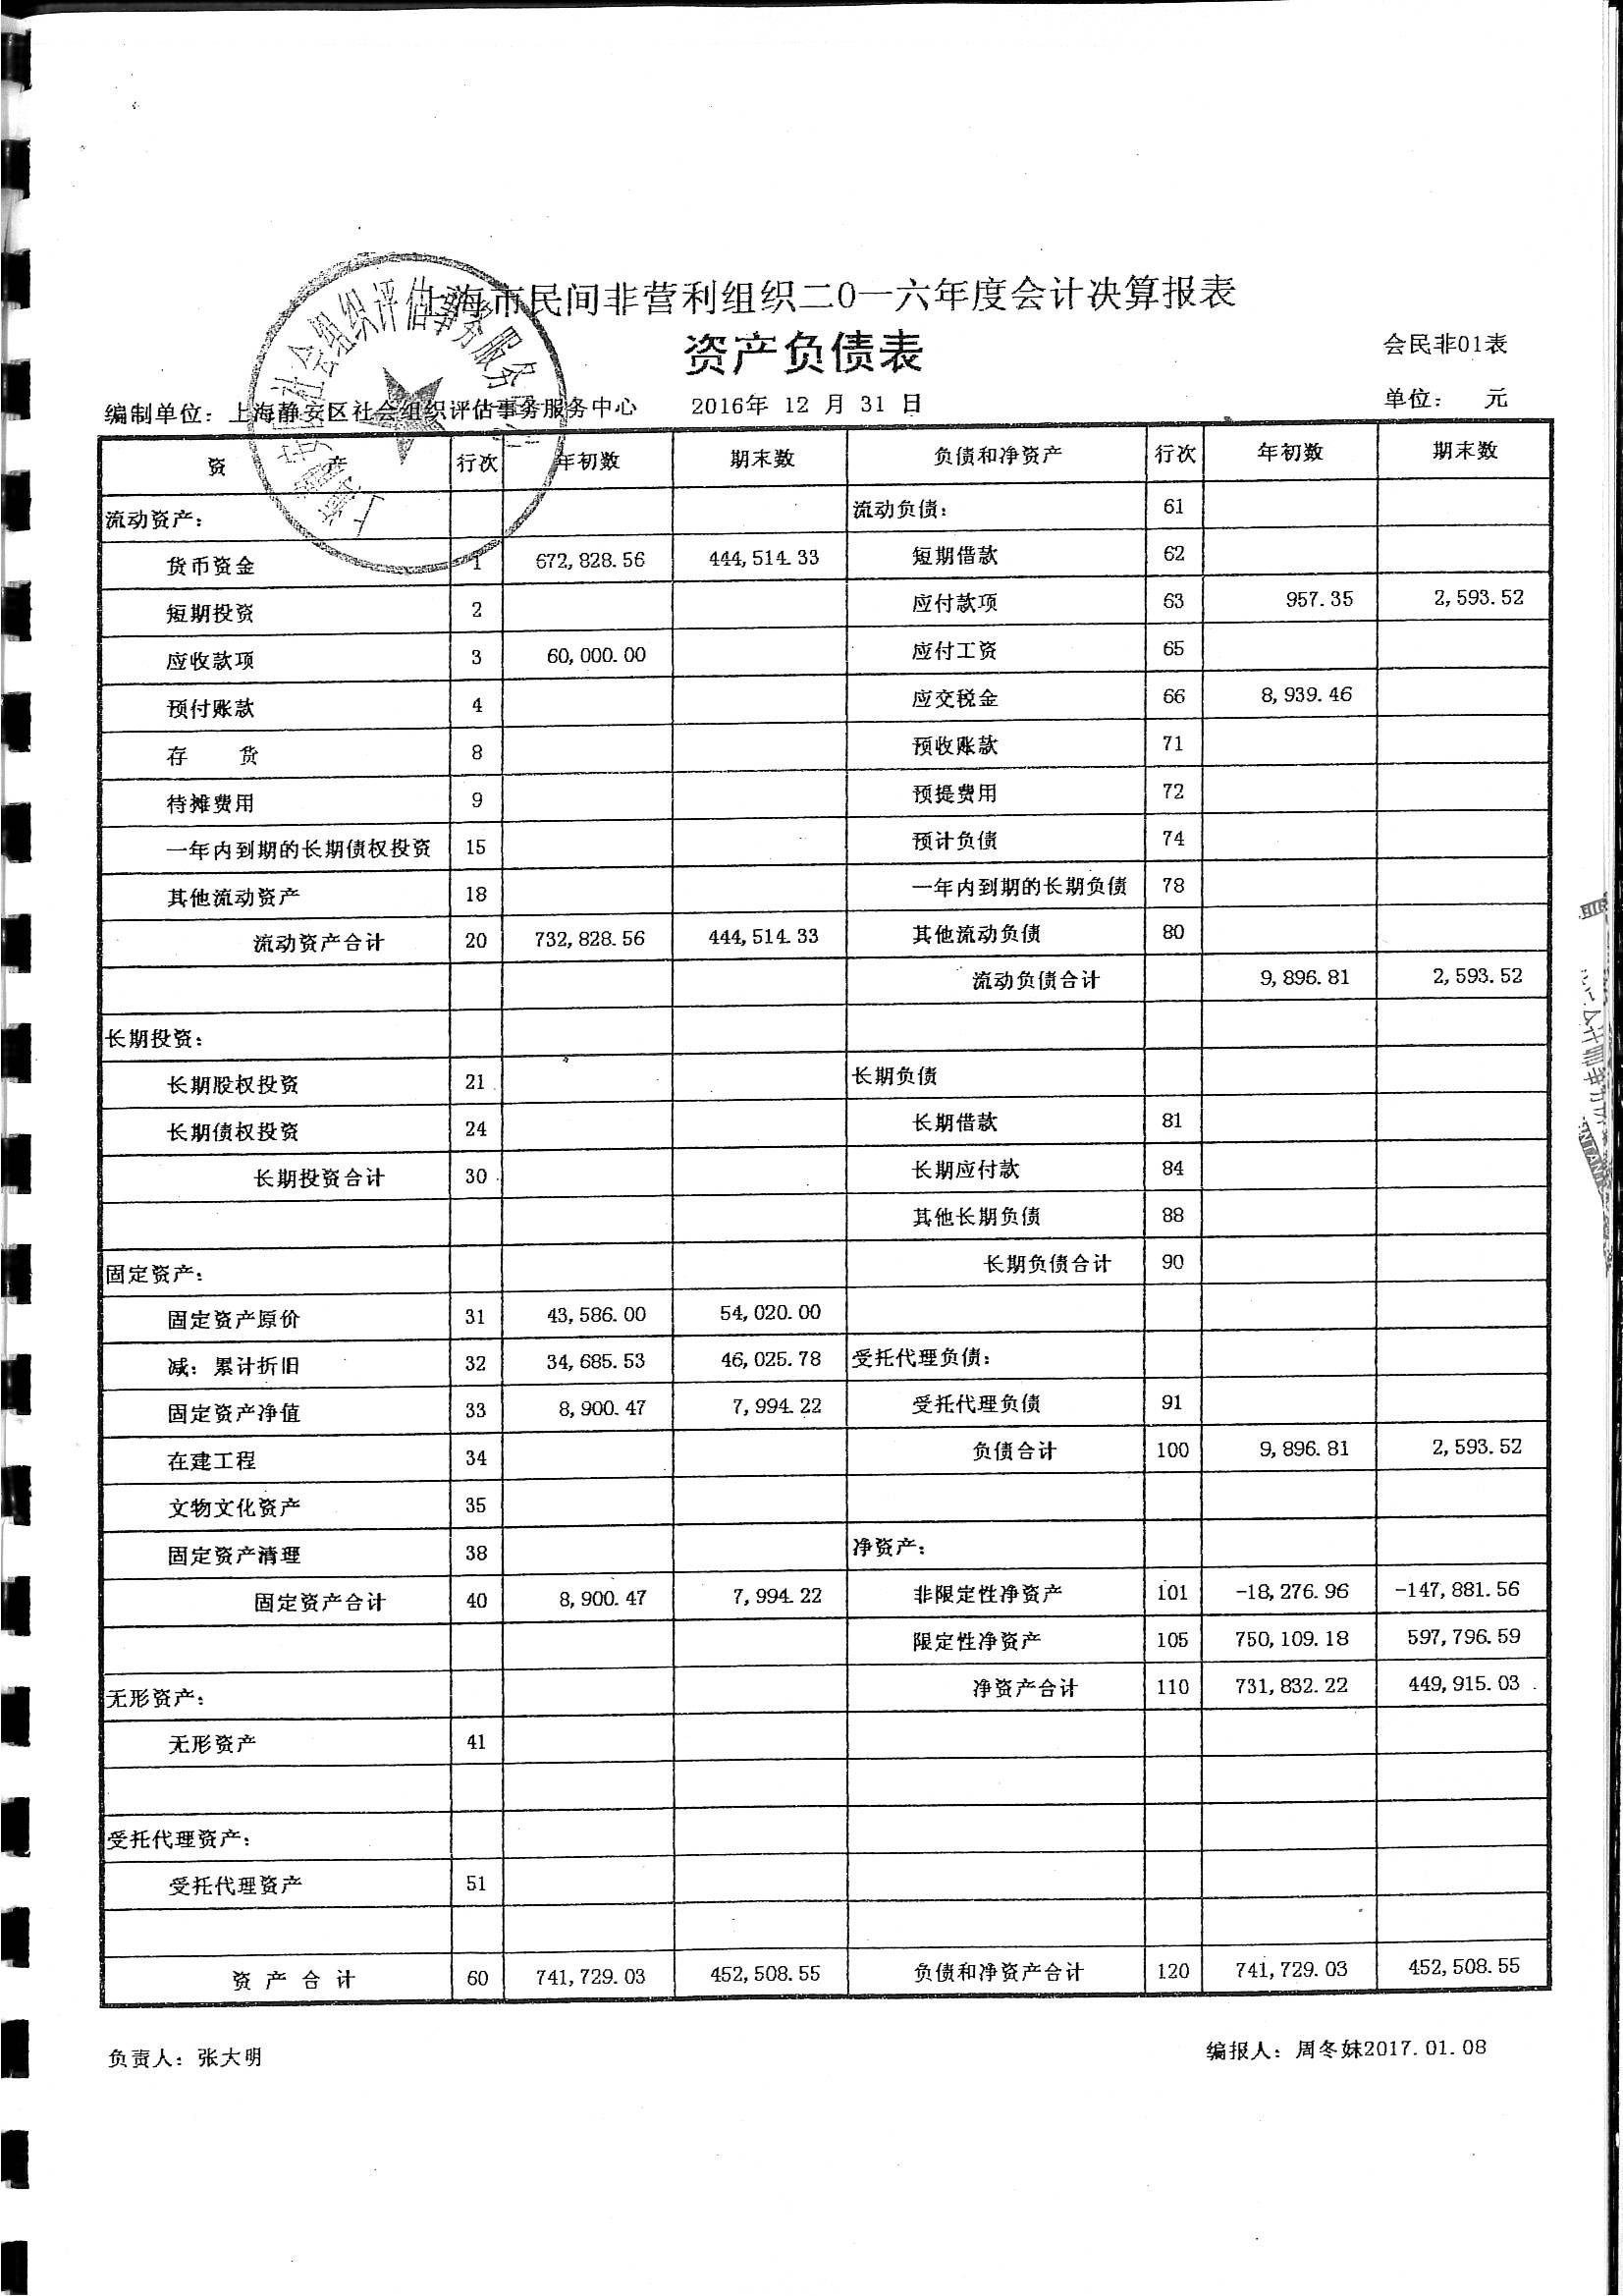 上海市民间非营利组织二0一六年度会计决算报表
资产负债表
会民非01表
编制单位：上海静安区社会组织评估事务服务中心 2016年 12 月 31 日 单位： 元
资 产 行次 年初数 期末数 负债和净资产 行次 年初数 期末数
流动资产： 流动负债： 61
货币资金 1 672,828.56 444,514.33 短期借款 62
短期投资 2 应付款项 63 957.35 2,593.52
应收款项 3 60,000.00 应付工资 65
预付账款 4 应交税金 66 8,939.46
存 货 8 预收账款 71
待摊费用 9 预提费用 72
一年内到期的长期债权投资 15 预计负债 74
其他流动资产 18 一年内到期的长期负债 78
流动资产合计 20 732,828.56 444,514.33 其他流动负债 80
流动负债合计 9,896.81 2,593.52
长期投资：
长期股权投资 21 长期负债
长期债权投资 24 长期借款 81
长期投资合计 30 长期应付款 84
其他长期负债 88
固定资产： 长期负债合计 90
固定资产原价 31 43,586.00 54,020.00
减：累计折旧 32 34,685.53 46,025.78 受托代理负债：
固定资产净值 33 8,900.47 7,994.22 受托代理负债 91
在建工程 34 负债合计 100 9,896.81 2,593.52
文物文化资产 35
固定资产清理 38 净资产：
固定资产合计 40 8,900.47 7,994.22 非限定性净资产 101 -18,276.96 -147,881.56
限定性净资产 105 750,109.18 597,796.59
无形资产： 净资产合计 110 731,832.22 449,915.03
无形资产 41
受托代理资产：
受托代理资产 51
资 产 合 计 60 741,729.03 452,508.55 负债和净资产合计 120 741,729.03 452,508.55
负责人：张大明 编报人：周冬妹2017.01.08